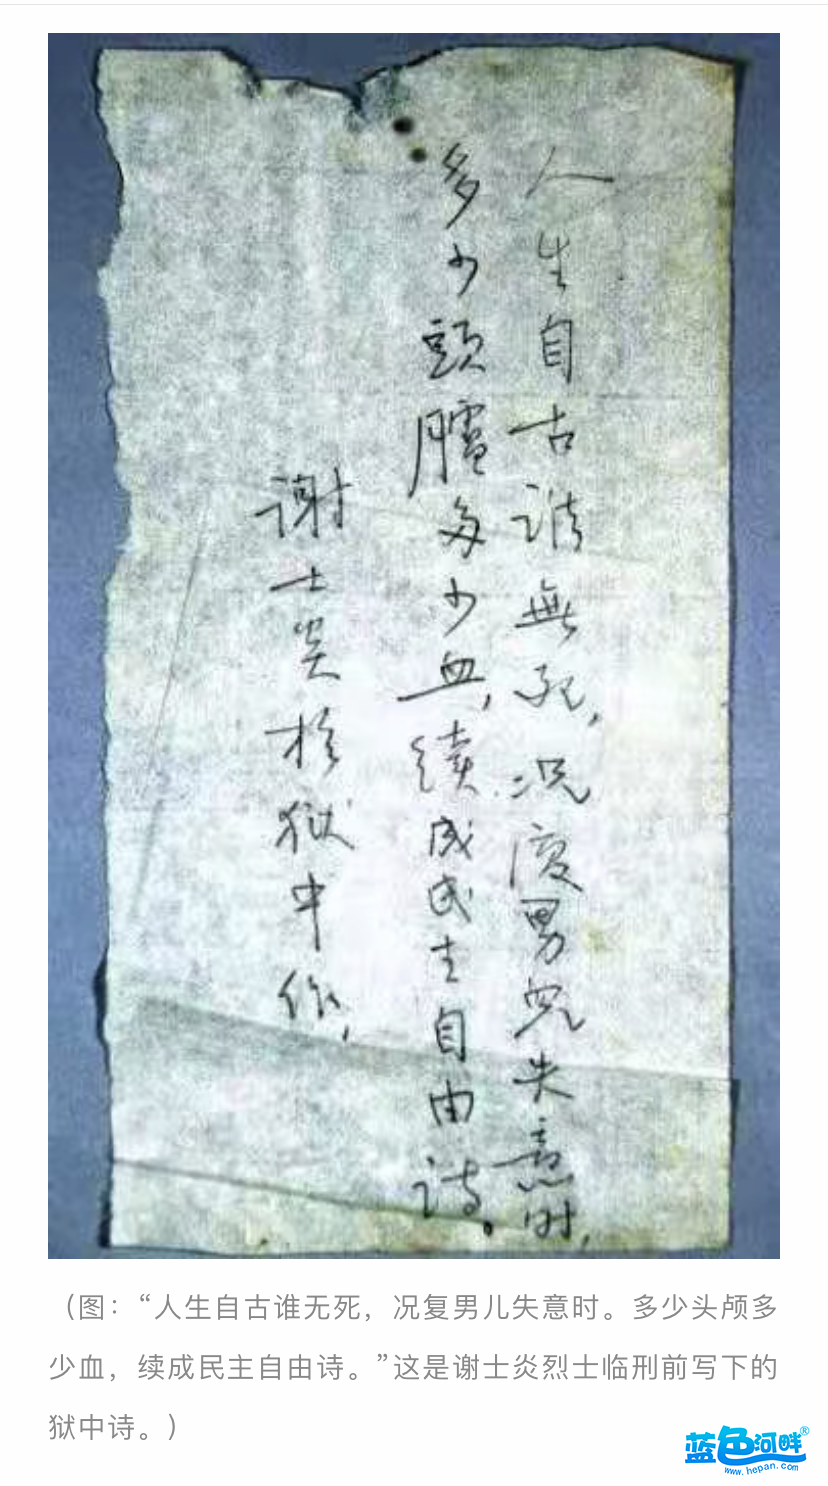 人生自古谁無死,况復男兒失意时,
多少頭臚多少血,续成民主自由诗。
谢士炎於狱中作,
(图:“人生自古谁无死,况复男儿失意时。多少头颅多
少血,续成民主自由诗。”这是谢士炎烈士临刑前写下的
狱中诗。)
蓝色河畔®
www.hepan.com